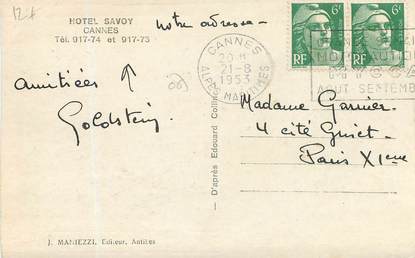 12 f
HOTEL SAVOY
CANNES
Tél. 917-74 et 917-73
notre adresse
amitiées
Goldstein
CANNES
20 H
21-8
1953
ALPES MARITIMES
6F
RF
6F
RF
AOUT SEPTEMB
Madame Garnier
4 cité
Paris XIeme
D'après Edouard Collin
J. MANIEZZI, Editeur, Antibes